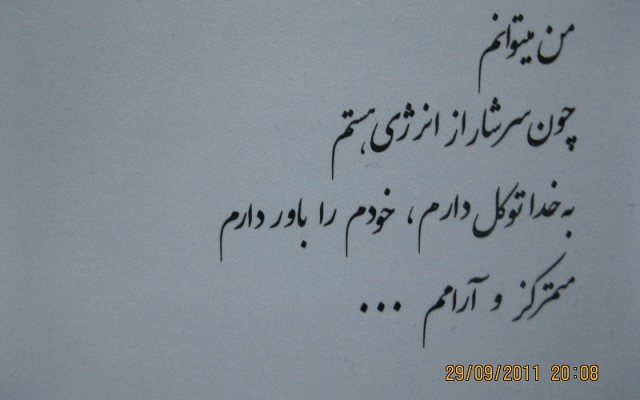 من میتوانم
چون سرشار از انرژی هستم
به خدا توکل دارم ، خودم را باور دارم
متمرکز و آرامم ...
29/09/2011 20:08